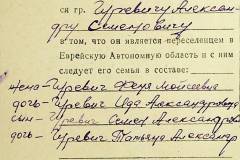 ся гр. Гуревичу Алексан-
дру Семеновичу
в том, что он является переселенцем в
Еврейскую Автономную область и с ним
следует его семья в составе:
жена - Гуревич Феня Моисеевна
дочь - Гуревич Ида Александровна
сын - Гуревич Семен Александров
дочь - Гуревич Татьяна Александр